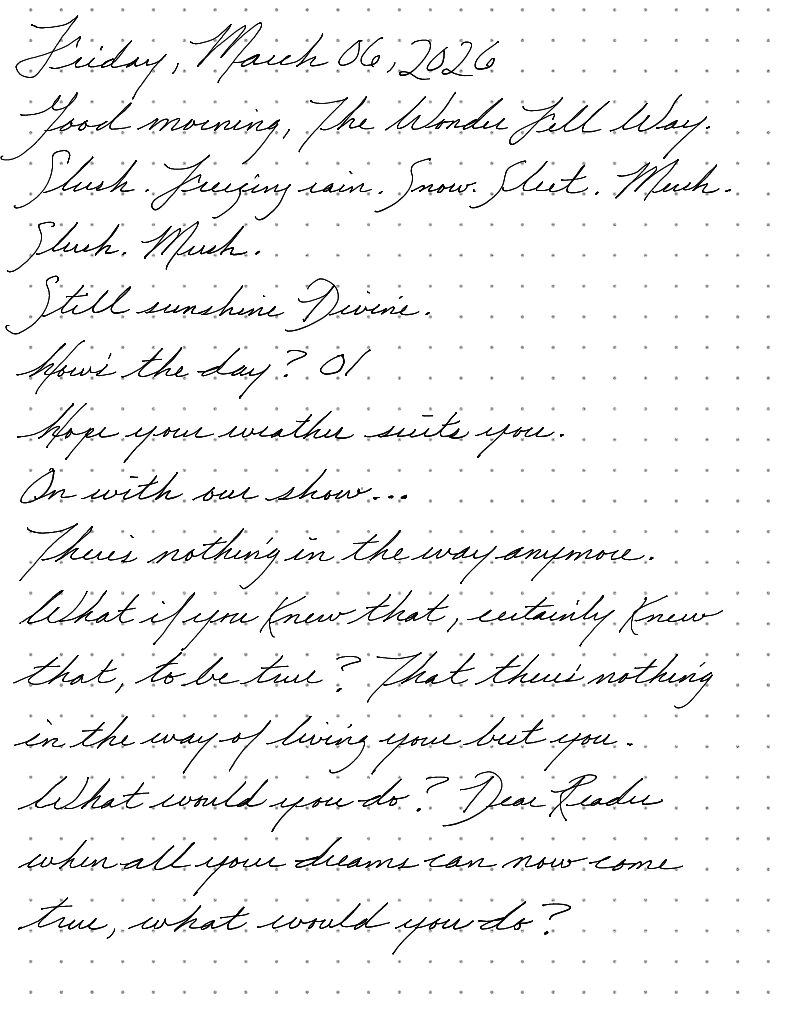 Friday, March 06, 2026
Good morning, The Wonder Fell Way.
Slush. Freezing rain. Snow. Sleet. Mush.
Slush. Mush.
Still sunshine Divine.
How's the day? 01
Hope your weather suits you.
On with our show...
There's nothing in the way anymore.
What if you knew that, certainly knew
that, to be true? That there's nothing
in the way of living your best you.
What would you do? Dear Reader
when all your dreams can now come
true, what would you do?